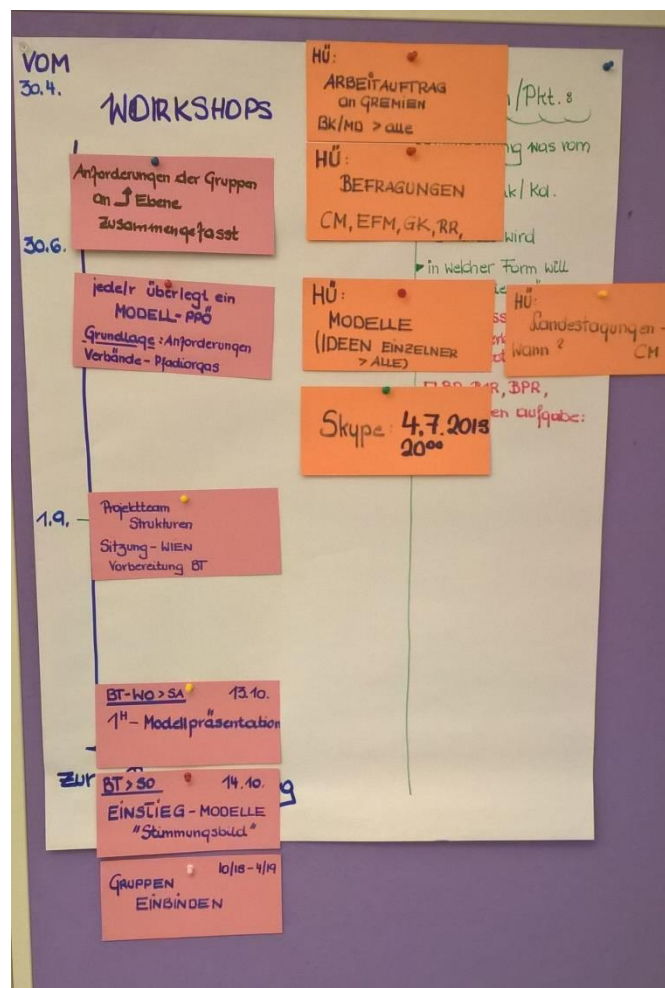 VOM
30.4.
WORKSHOPS
Anforderungen der Gruppen
an Ebene
zusammengefasst
30.6.
jede/r überlegt ein
MODELL-PPÖ
Grundlage: Anforderungen
Verbände-Pfadiorgas
1.9.
Projektteam
Strukturen
Sitzung-WIEN
Vorbereitung BT
BT-WO>SA 13.10.
1H-Modellpräsentation
Zur
BT>SO 14.10.
EINSTIEG-MODELLE
"Stimmungsbild"
GRUPPEN 10/18-4/19
EINBINDEN
HÜ:
ARBEITAUFTRAG
an GREMIEN
BK/MD > alle
HÜ:
BEFRAGUNGEN
CM, EFM, GK, RR,
HÜ:
MODELLE
(IDEEN EINZELNER
> ALLE)
Skype: 4.7.2018
20⁰⁰
/Pkt. 8
was vom
/Kd.
wird
in welcher Form will
HÜ:
Landestagungen -
Wann? CM
BPR,
aufgabe: